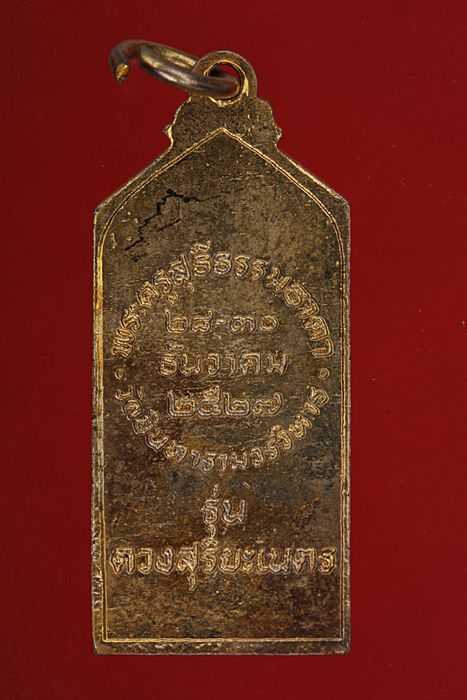 พระครูสุธีธรรมธาดา
๒๘-๓๐
ธันวาคม
๒๕๒๗
วัดอินทารามวรวิหาร
รุ่น
ดวงสุริยะเนตร